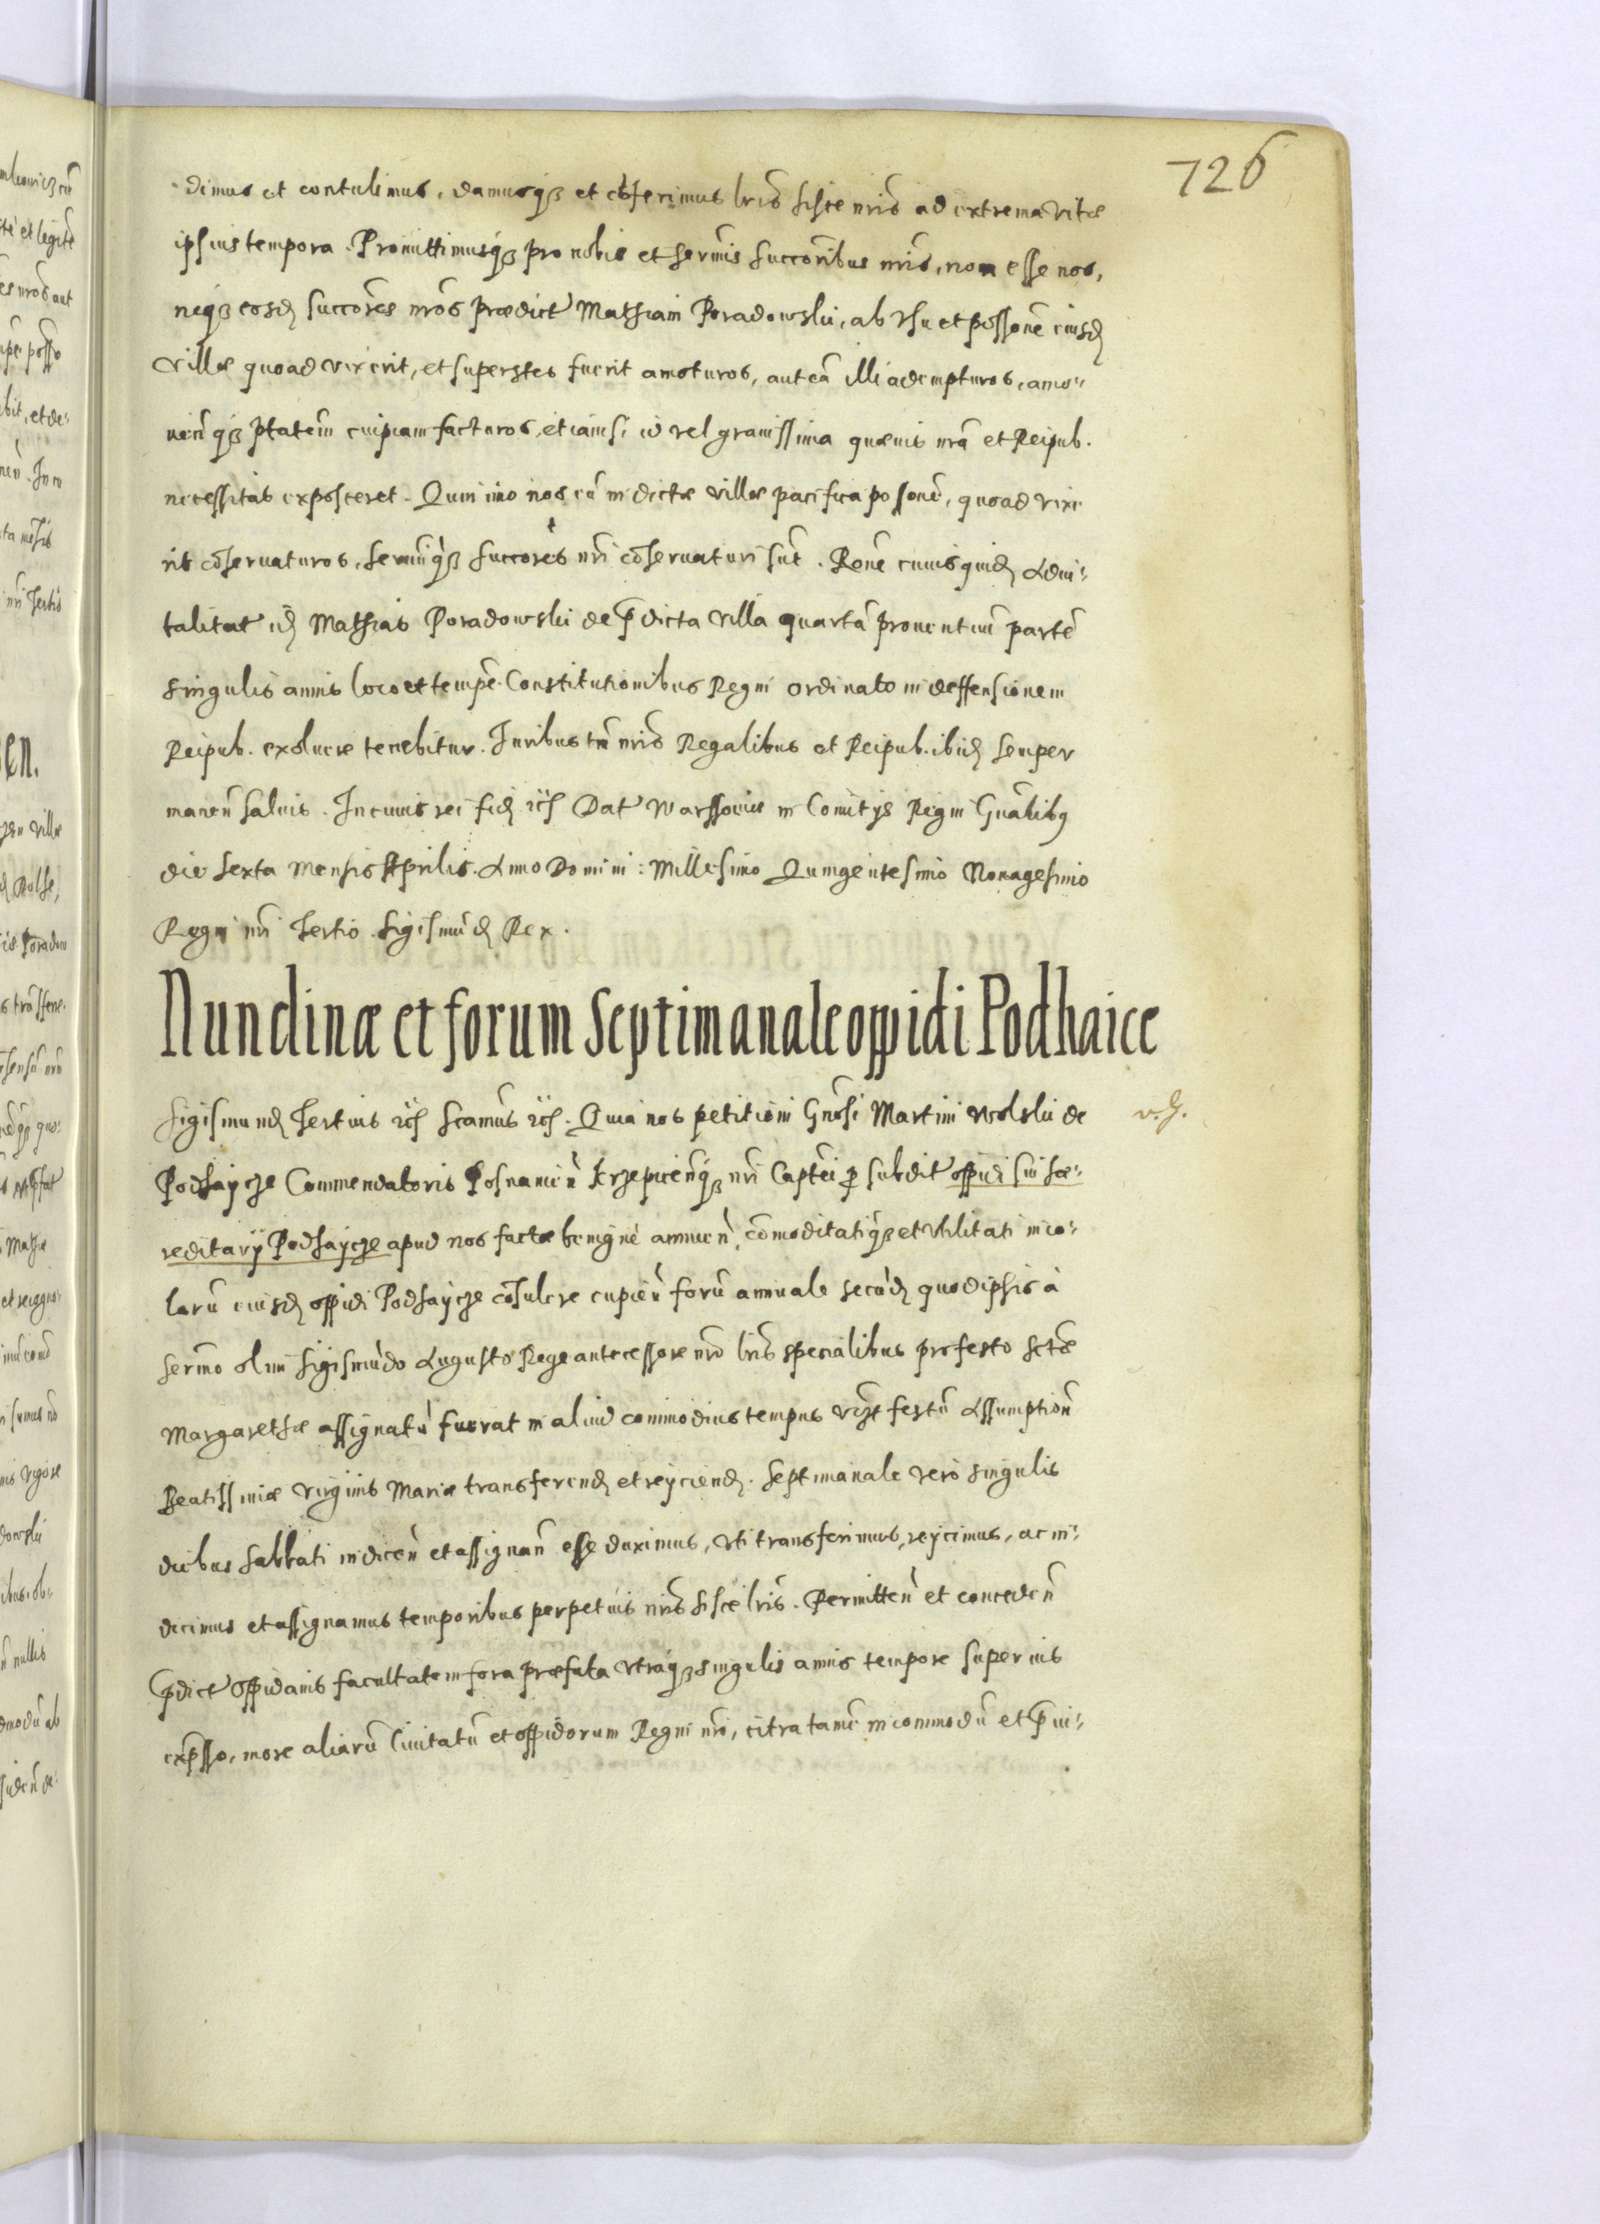 726
dimus et contulimus, damusq3 et cōferimus lr̃is hisce nr̃is ad extrema vitæ
ipsius tempora. Promittimusq3 pro nobis et Ser̃mis Succor̃ibus nr̃is, non esse nos,
neq3 eosd̃ succor̃es nr̃os prædict Mathiam Poradowski, ab vsu et possōne eiusd̃
villæ quoad vixerit, et superstes fuerit amoturos, aut eā illi adempturos, amo-
uen̄q3 ptātem cuipiam facturos, etiamsi id vel grauissima quæuis nr̃a et Reipub.
necessitas exposceret. Quin imo nos eū in dictæ villæ pacifica possōne, quoad vixe
rit cōseruaturos, Ser̃miq3 succor̃es nr̃i cōseruaturi sūt. Rōne cuius quid̃ Adui-
talitat id̃ Mathias Poradowski de p̄dicta villa quartā prouentuū partē
singulis annis loco et temp̄e Constitutionibus Regni ordinato in deffensionem
Reipub. exoluere tenebitur. Iuribus tn̄ nr̃is Regalibus et Reipub. ibid̃ semper
manen̄ saluis. In cuius rei fid̃ etc̃ Dat Warssouiæ in Comitijs Regni Gn̄alibus
die sexta mensis Aprilis. Anno Domini: Millesimo Quingentesimo Nonagesimo
Regni nr̃i Tertio. Sigismūd̃ Rex.
Nundinæ et forum septimanale oppidi Podhaice
Sigismund̃ Tertius etc̃ Scamūs etc̃. Quia nos petitioni Gn̄osi Martini Wolski de
Podhaycze Commendatoris Posnanien̄ Krzepicen̄q3 nr̃i Captēi p̱ subdit oppidi sui hæ-
reditarÿ Podhaycze apud nos factæ benignè annuen̄, cōmoditatiq3 et vtilitati inco-
larū eiusd̃ oppidi Podhaycze cōsulere cupien̄ forū annuale secūd̃ quod ipsis à
Ser̃mo olim Sigismūdo Augusto Rege antecessore nr̃o lr̃is specialibus pro festo Sctæ
Margarethæ assignatū fuerat in aliud commodius tempus vizt festū Assumption̄
Beatissimæ Virginis Mariæ transferend̃ et reÿciend̃. Septimanale verò singulis
diebus Sabbati indicen̄ et assignan̄ esse duximus, vti transferimus, reÿcimus, ac in-
dicimus et assignamus temporibus perpetuis nr̃is hisce lr̃is. Permitten̄ et conceden̄
p̄dict oppidanis facultatem fora præfata vtraq3 singulis annis tempore superius
exp̄sso, more aliarū Ciuitatū et oppidorum Regni nr̃i, citra tamē incommodū et p̄iu-